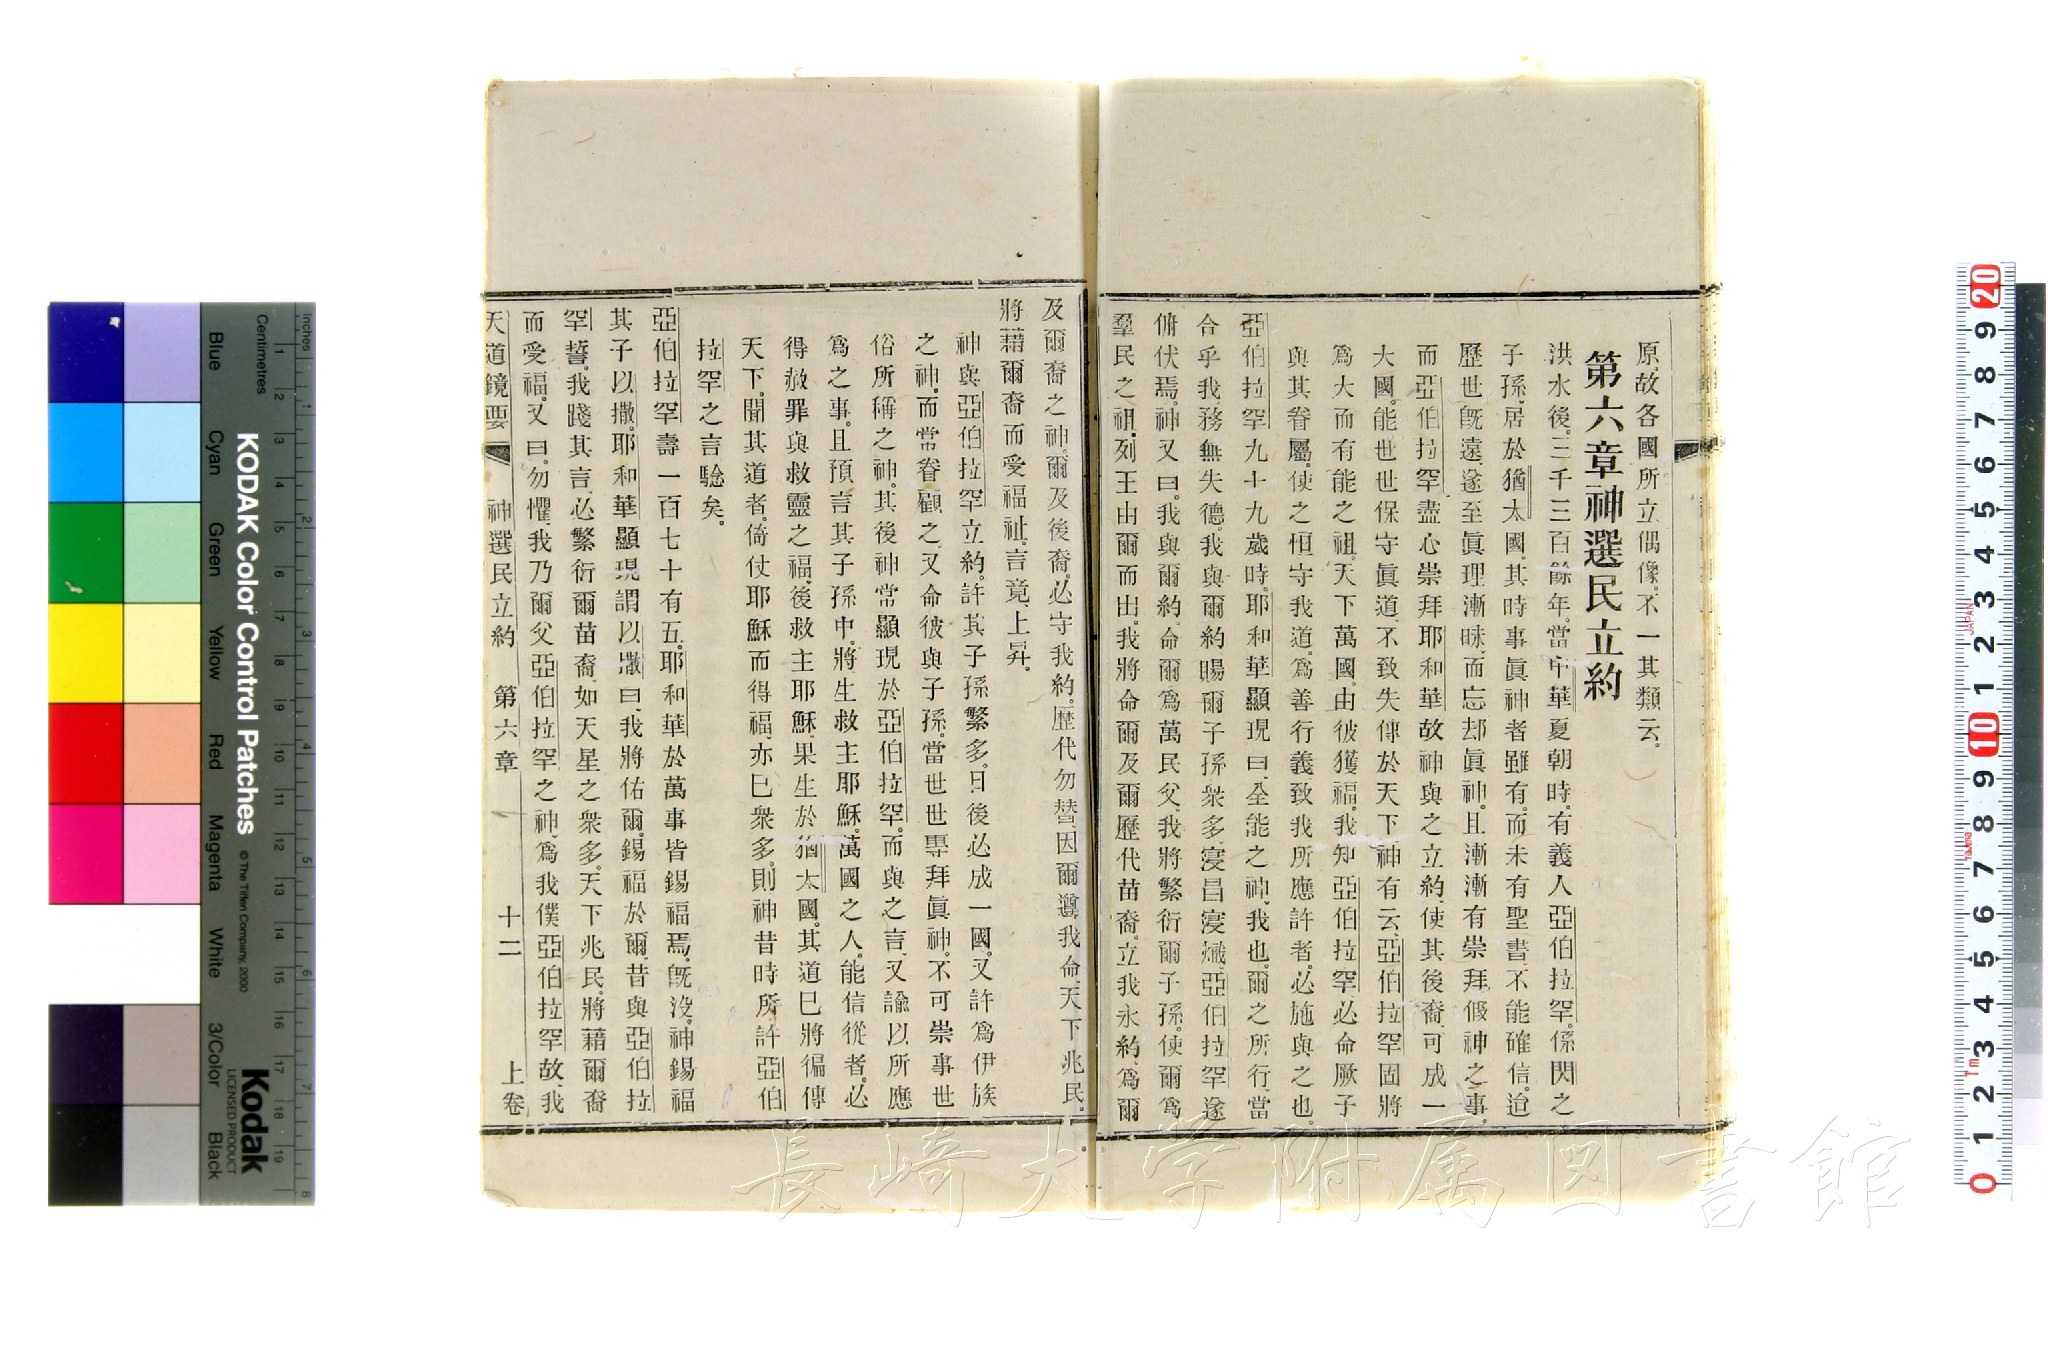 原、故各國所立偶像、不一其類云。
第六章神選民立約
洪水後、三千三百餘年、當中華夏朝時、有義人亞伯拉罕、係閃之
子孫、居於猶太國、其時事眞神者雖有、而未有聖書、不能確信、迨
歷世旣遠、遂至眞理漸昧、而忘却眞神、且漸漸有崇拜假神之事、
而亞伯拉罕盡心崇拜耶和華、故神與之立約、使其後裔、可成一
大國、能世世保守眞道、不致失傳於天下、神有云、亞伯拉罕固將
爲大而有能之祖、天下萬國、由彼獲福、我知亞伯拉罕必命厥子
與其眷屬、使之恒守我道、爲善行義、致我所應許者、必施與之也。
亞伯拉罕九十九歲時、耶和華顯現曰、全能之神、我也、爾之所行、當
合乎我、務無失德、我與爾約、賜爾子孫衆多、寖昌寖熾、亞伯拉罕遂
俯伏焉、神又曰、我與爾約、命爾爲萬民父、我將繁衍爾子孫、使爾爲
羣民之祖、列王由爾而出、我將命爾及爾歷代苗裔、立我永約、爲爾
及爾裔之神、爾及後裔、必守我約、歷代勿替、因爾遵我命、天下兆民、
將藉爾裔而受福祉、言竟、上昇。
神與亞伯拉罕立約、許其子孫繁多、日後必成一國、又許爲伊族
之神、而常眷顧之、又命彼與子孫、當世世專拜眞神、不可崇事世
俗所稱之神、其後神常顯現於亞伯拉罕、而與之言、又諭以所應
爲之事、且預言其子孫中、將生救主耶穌、萬國之人、能信從者、必
得赦罪與救靈之福、後救主耶穌、果生於猶太國、其道已將徧傳
天下、聞其道者、倚仗耶穌而得福、亦已衆多、則神昔時所許亞伯
拉罕之言驗矣。
亞伯拉罕壽一百七十有五、耶和華於萬事皆錫福焉、旣沒、神錫福
其子以撒、耶和華顯現、謂以撒曰、我將佑爾、錫福於爾、昔與亞伯拉
罕誓、我踐其言、必繁衍爾苗裔、如天星之衆多、天下兆民、將藉爾裔
而受福、又曰、勿懼、我乃爾父亞伯拉罕之神、爲我僕亞伯拉罕故、我
天道鏡要 神選民立約 第六章 十二 上卷
KODAK Color Control Patches
© The Tiffen Company, 2000
Kodak
LICENSED PRODUCT
Inches
Centimetres
Blue Cyan Green Yellow Red Magenta White 3/Color Black
長崎大学附属図書館
JAPAN